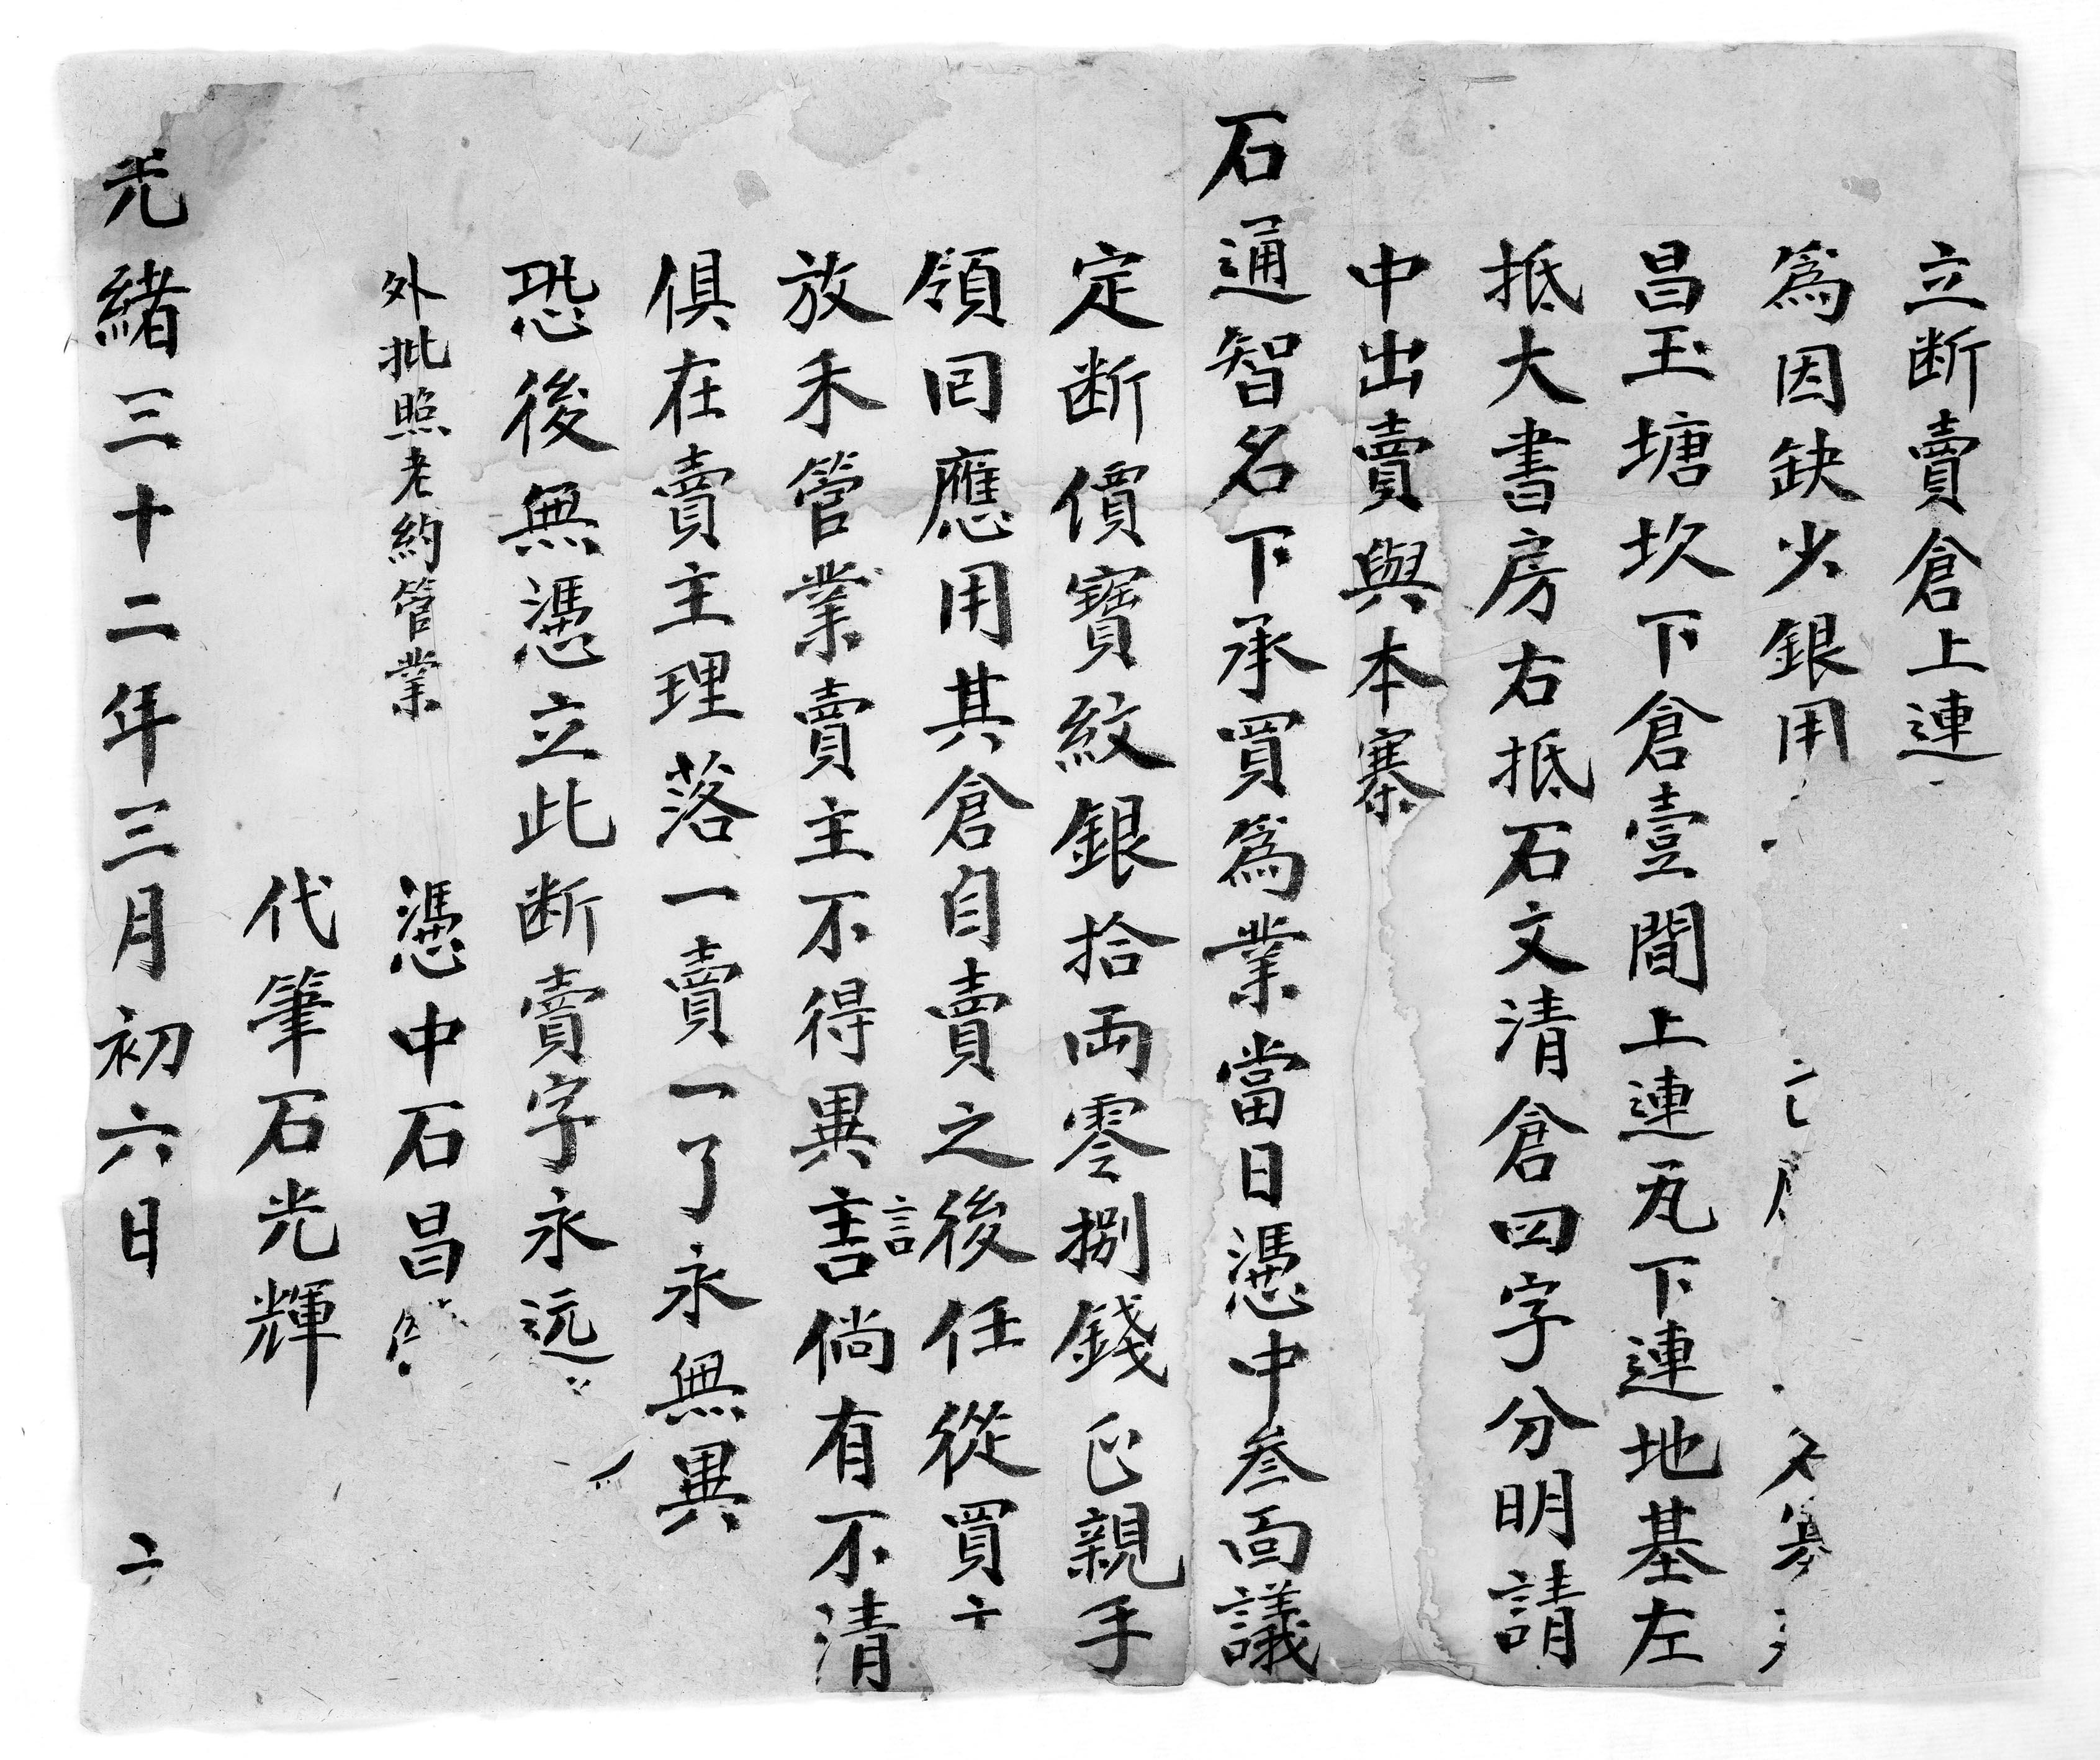 立断賣倉上連
爲因缺少銀用
昌玉塘坎下倉壹間上連瓦下連地基左
抵大書房右抵石文清倉四字分明請
中出賣與本寨
石通智名下承買爲業當日憑中叁面議
定断價寶紋銀拾両零捌錢正親手
領回應用其倉自賣之後任從買
放禾管業賣主不得異言倘有不清
言
俱在賣主理落一賣一了永無異
恐後無憑立此断賣字永远
外批照老約管業
憑中石昌
代筆石光輝
光緒三十二年三月初六日